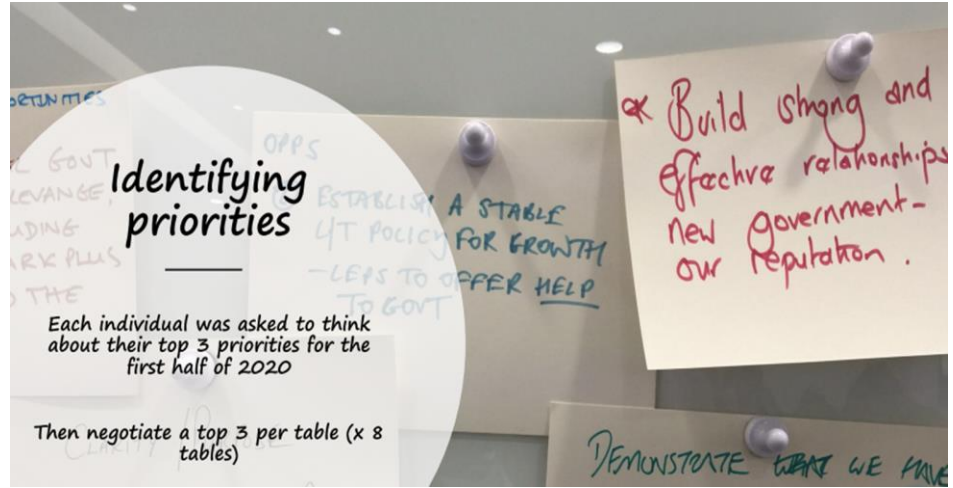 Identifying
priorities
Each individual was asked to think
about their top 3 priorities for the
first half of 2020
Then negotiate a top 3 per table (x 8
tables)
GOVT
PLUS
THE
OPPS
ESTABLISH A STABLE
L/T POLICY FOR GROWTH
-LEPS TO OFFER HELP
TO GOVT
Build strong and
effective relationships
new government-
our reputation.
DEMONSTRATE WHAT WE HAVE